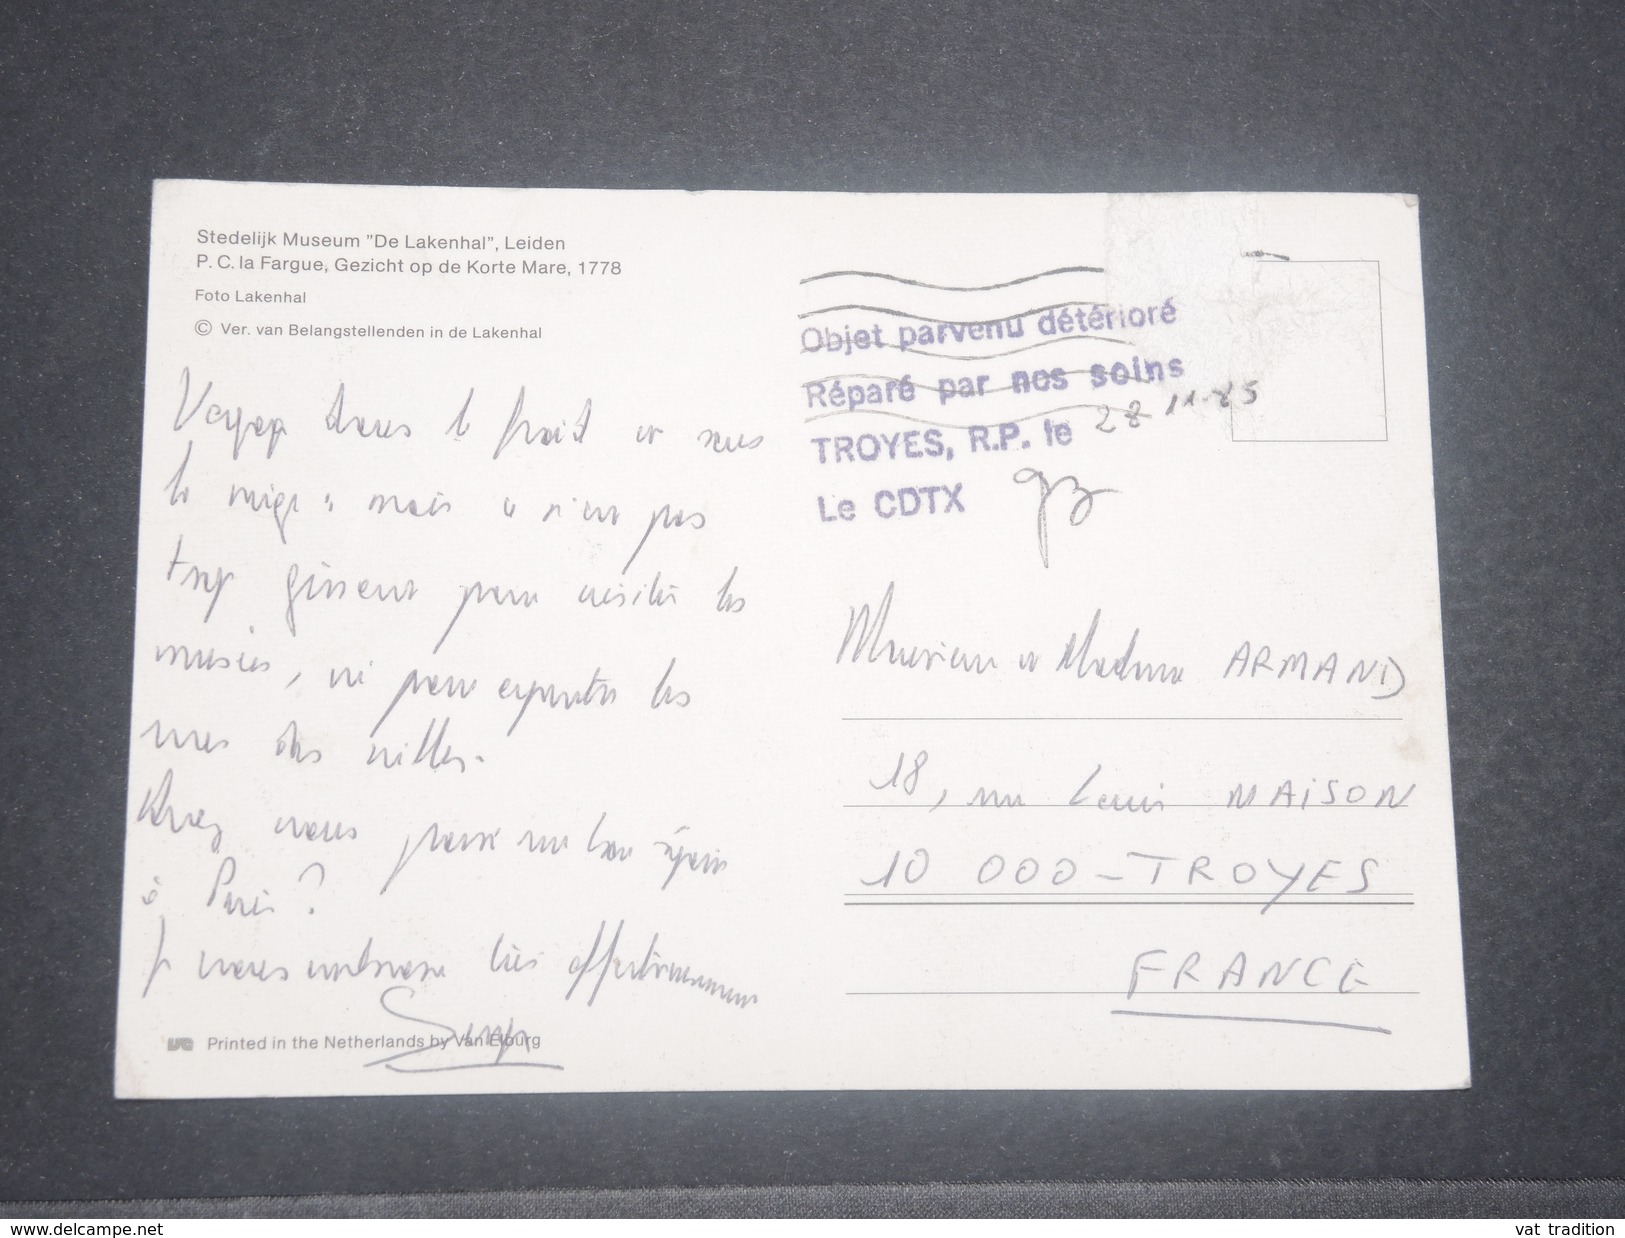 Stedelijk Museum "De Lakenhal", Leiden
P. C. la Fargue, Gezicht op de Korte Mare, 1778
Foto Lakenhal
© Ver. van Belangstellenden in de Lakenhal
Voyage dans le froid et sous
la neige : mais ce n'est pas
trop gênant pour visiter les
musées, ni pour arpenter les
rues des villes.
Avez vous passé un bon séjour
à Paris ?
Je vous embrasse très affectueusement
Printed in the Netherlands by Van Elburg
Objet parvenu détérioré
Réparé par nos soins
TROYES, R.P. le 28 11.85
Le CDTX
Monsieur et Madame ARMAND
18, rue Louis MAISON
10 000 - TROYES
FRANCE
www.delcampe.net
vat tradition